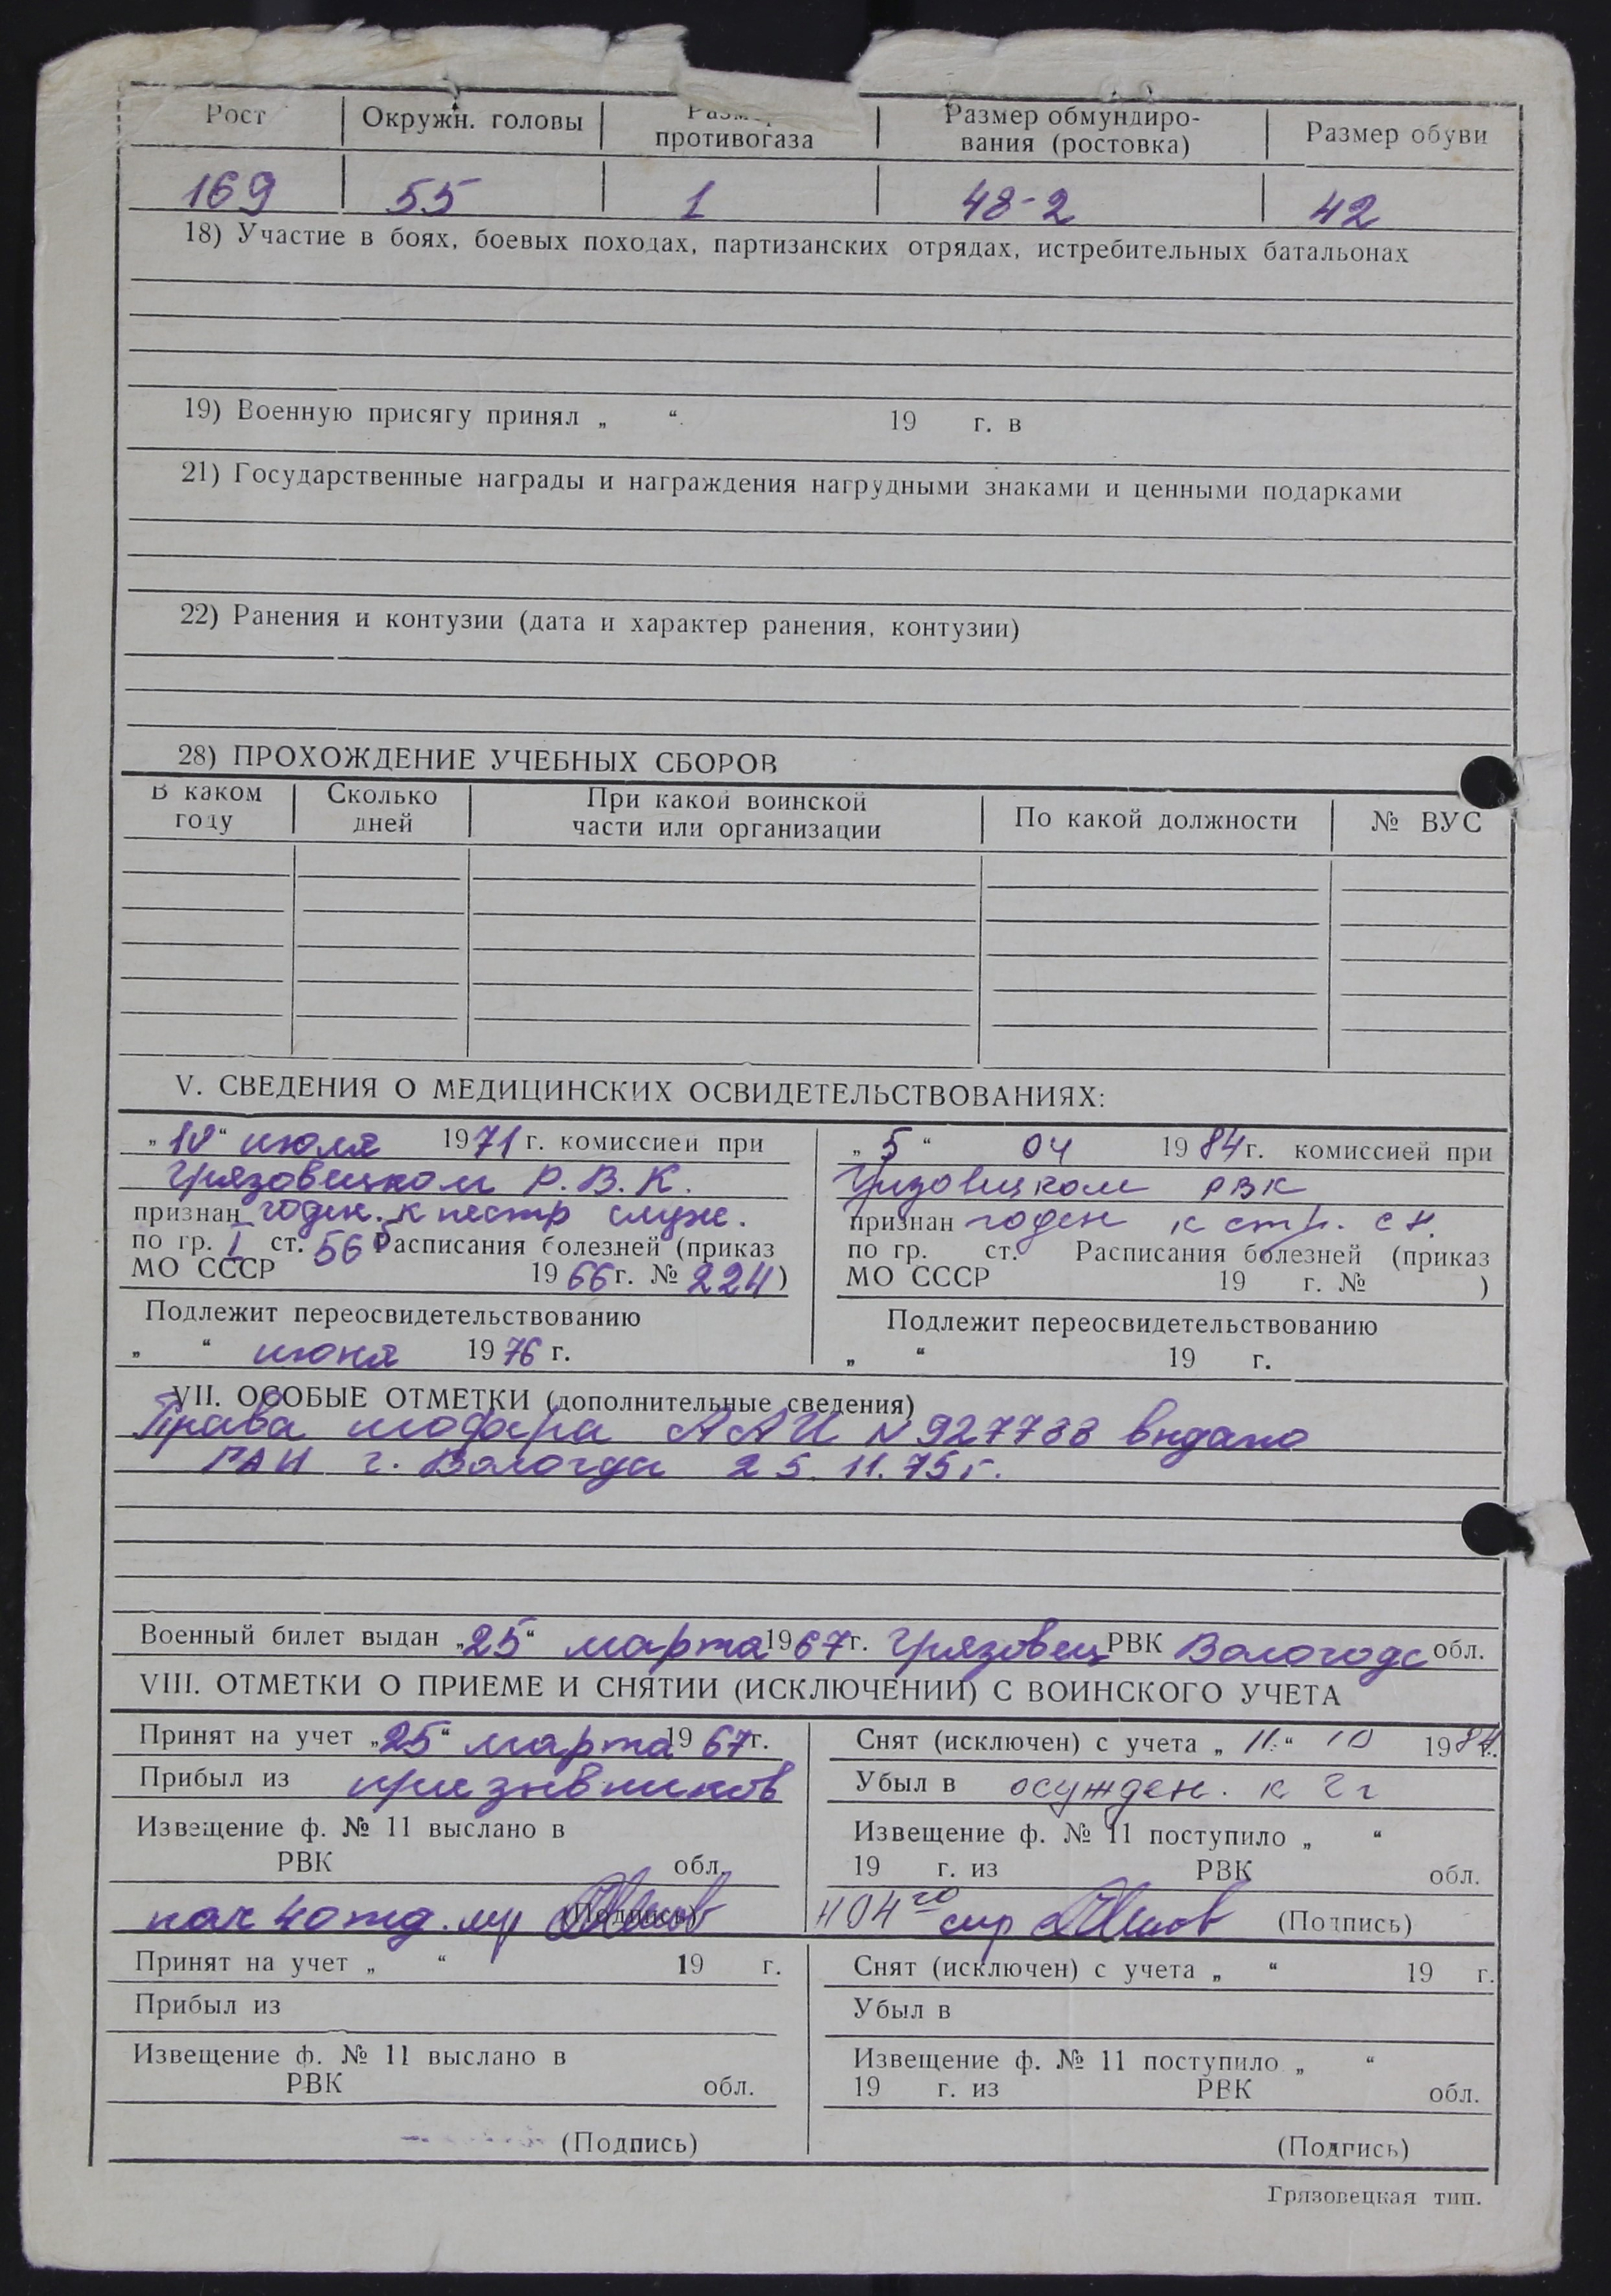 Рост Окружн. головы Размер противогаза Размер обмундиро-вания (ростовка) Размер обуви
169 55 1 48-2 42
18) Участие в боях, боевых походах, партизанских отрядах, истребительных батальонах
19) Военную присягу принял „ “ 19 г. в
21) Государственные награды и награждения нагрудными знаками и ценными подарками
22) Ранения и контузии (дата и характер ранения, контузии)
28) ПРОХОЖДЕНИЕ УЧЕБНЫХ СБОРОВ
В каком году Сколько дней При какой воинской части или организации По какой должности № ВУС
V. СВЕДЕНИЯ О МЕДИЦИНСКИХ ОСВИДЕТЕЛЬСТВОВАНИЯХ:
„10“ июля 1971 г. комиссией при
Грязовецком Р.В.К.
признан годен. к нестр служ.
по гр. I ст. 56 Расписания болезней (приказ
МО СССР 1966 г. № 224)
Подлежит переосвидетельствованию
„ “ июня 1976 г.
„5“ 04 1984 г. комиссией при
Грязовецком РВК
признан годен к стр. сл.
по гр. ст. Расписания болезней (приказ
МО СССР 19 г. № )
Подлежит переосвидетельствованию
„ “ 19 г.
VII. ОСОБЫЕ ОТМЕТКИ (дополнительные сведения)
Права шофера ААИ N 927733 выдано
ГАИ г. Вологда 25.11.75 г.
Военный билет выдан „25“ марта 1967 г. Грязовец РВК Вологодс обл.
VIII. ОТМЕТКИ О ПРИЕМЕ И СНЯТИИ (ИСКЛЮЧЕНИИ) С ВОИНСКОГО УЧЕТА
Принят на учет „25“ марта 1967 г.
Прибыл из призывников
Извещение ф. № 11 выслано в
РВК обл.
нач 4 отд. (Подпись)
Снят (исключен) с учета „11.“ 10 1984 г.
Убыл в осужден. к 2 г
Извещение ф. № 11 поступило „ “
19 г. из РВК обл.
(Подпись)
Принят на учет „ “ 19 г.
Прибыл из
Извещение ф. № 11 выслано в
РВК обл.
(Подпись)
Снят (исключен) с учета „ “ 19 г.
Убыл в
Извещение ф. № 11 поступило „ “
19 г. из РВК обл.
(Подпись)
Грязовецкая тип.